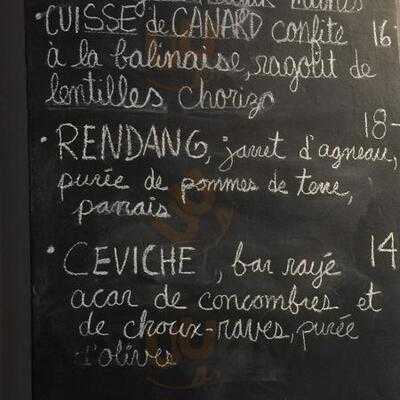 • CUISSE de CANARD confite 16
à la balinaise, ragoût de
lentilles chorizo
• RENDANG, jarret d'agneau, 18-
purée de pommes de terre,
panais
• CEVICHE, bar rayé 14
acar de concombres et
de choux-raves, purée
d'olives